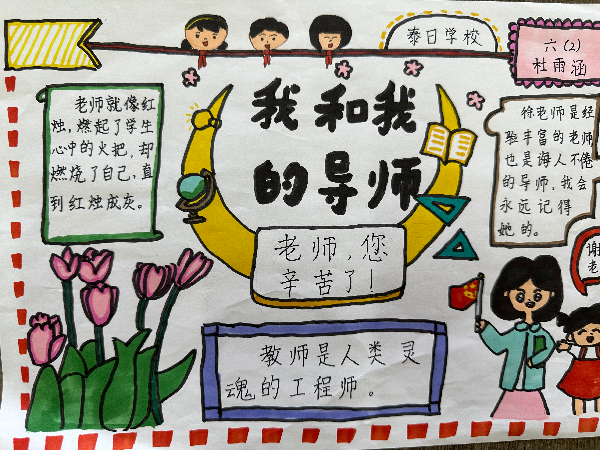 泰日学校
六(2)
杜雨涵
我和我
的导师
老师就像红
烛,燃起了学生
心中的火把,却
燃烧了自己,直
到红烛成灰。
徐老师是经
验丰富的老师
也是诲人不倦
的导师,我会
永远记得
她的。
老师,您
辛苦了!
谢
老
教师是人类灵
魂的工程师。